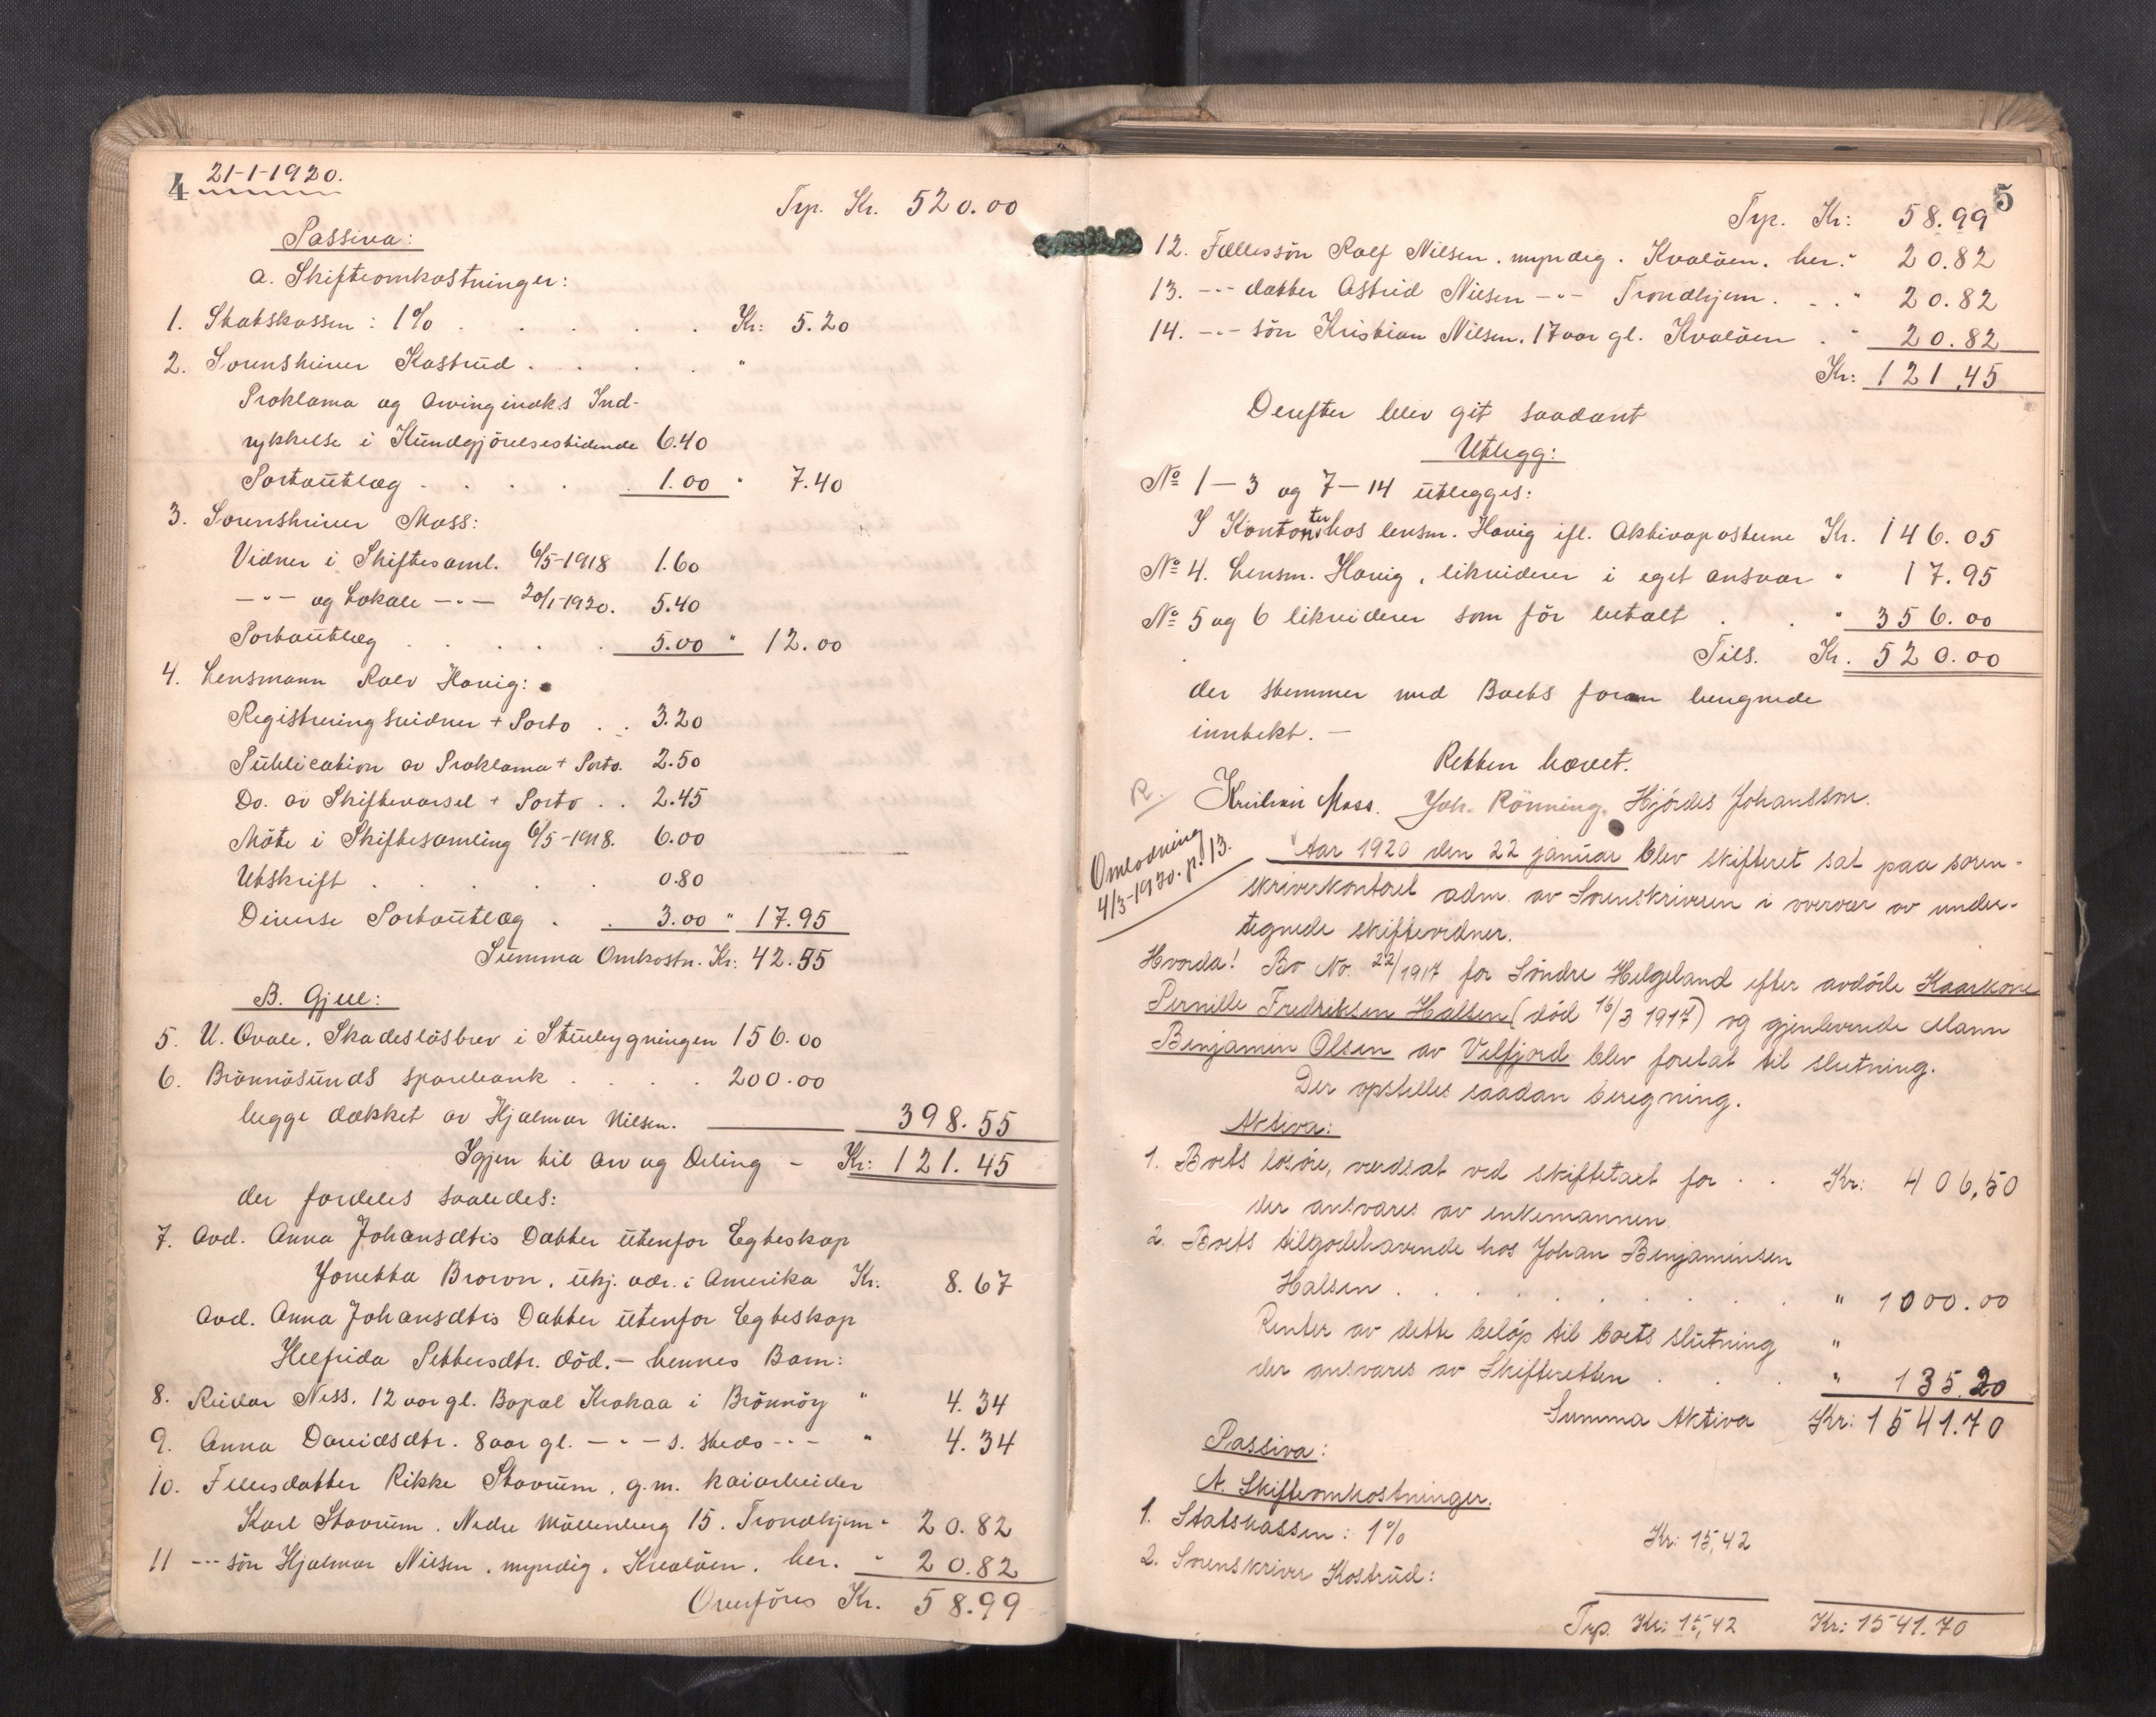 4 21-1-1920.
Trp. Kr. 520.00
Passiva:
a. Skifteomkostninger:
1. Statskassen: 1% . . . . . Kr: 5.20
2. Sorenskriver Kastrud . . . . . "
Proklama og Arvinginnk.s Ind-
rykkelse i Kundgjörelsestidende 6.40
Portoutlæg . . . . 1.00 " 7.40
3. Sorenskriver Moss:
Vidner i Skiftesaml. 6/5-1918 1.60
-"- og Lokale -"- 20/1-1920. 5.40
Portoutlæg . . . . . 5.00 " 12.00
4. Lensmann Rolv Havig:
Registreringsvidner + Porto . . 3.20
Publication av Proklama + Porto. 2.50
Do. av Skiftevarsel + Porto . . 2.45
Möte i Skiftesamling 6/5-1918. 6.00
Utskrift . . . . . 0.80
Diverse Portoutlæg . . 3.00 " 17.95
Summa Omkostn. Kr: 42.55
B. Gjeld:
5. U. Qvale. Skadeslösbrev i Stuebygningen 156.00
6. Brönnösunds sparebank . . . . 200.00
begge dækket av Hjalmar Nilsen. 398.55
Igjen til Arv og Deling - Kr: 121.45
der fordeles saaledes:
7. Avd. Anna Johansdtrs Datter utenfor Egteskap
Jonetta Brown, ukj. adr. i Amerika Kr. 8.67
Avd. Anna Johansdtrs Datter utenfor Egteskap
Helfrida Pettersdtr. död. - hennes Barn:
8. Reidar Ness. 12 aar gl. Bopæl Krokaa i Brönnöy " 4.34
9. Anna Davidsdtr. 8 aar gl. -"- s. steds -"- " 4.34
10. Fellesdatter Rikke Stavrum, g.m. kaiarbeider
Karl Stavrum. Nedre Möllenberg 15. Trondhjem " 20.82
11 -"- sön Hjalmar Nilsen, myndig, Kvalöen, her. " 20.82
Overföres Kr. 58.99
5
Trp. Kr: 58.99
12. Fællessön Rolf Nilsen, myndig. Kvalöen. her. " 20.82
13. -"- datter Astrid Nilsen -"- Trondhjem. . . " 20.82
14. -"- sön Kristian Nilsen, 17 aar gl. Kvalöen . " 20.82
Kr: 121,45
Derefter blev git saadant
Utlegg:
No 1-3 og 7-14 utlegges:
I Kontanter hos lensm. Havig ifl. Aktivaposterne Kr. 146.05
No 4. Lensm. Havig, likviderer i eget ansvar " 17.95
No 5 og 6 likviderer som för betalt . . " 356.00
Tils. Kr. 520.00
der stemmer med Boets foran beregnede
inntekt. -
Retten hævet.
R. Kristian Moss. Joh. Rönning. Hjördis Johansson.
Omlodning
4/3-1920. p. 13.
Aar 1920 den 22 januar blev skifteret sat paa soren-
skriverkontoret adm. av Sorenskriveren i overvær av under-
tegnede skiftevidner.
Hvorda! Bo No. 22/1917 for Söndre Helgeland efter avdöde Kaarkone
Pernille Fredriksen Halsen (död 16/3 1917) og gjenlevende Mann
Benjamin Olsen av Velfjord blev foretat til slutning.
Der opstilles saadan beregning.
Aktiva:
1. Boets lösöre, værdsat ved skiftetaxt for . . Kr: 406,50
der ansvares av enkemannen.
2. Boets tilgodehavende hos Johan Benjaminsen
Halsen . . . . . . . . " 1000.00
Renter av dette belöp til boets slutning "
der ansvares av Skifteretten . . . " 135.20
Summa Aktiva Kr: 1541.70
Passiva:
A. Skifteomkostninger.
1. Statskassen: 1% Kr: 15,42
2. Sorenskriver Kostrud:
Trp. Kr: 15,42 Kr: 1541.70